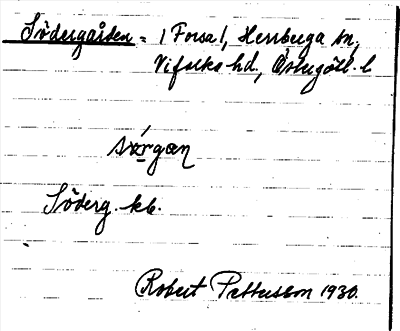 Södergården = /Forsa/, Herrberga sn,
Vifolka hd, Östergötl. l
sǿrgæn
Söderg. kb.
Robert Pettersson 1930.